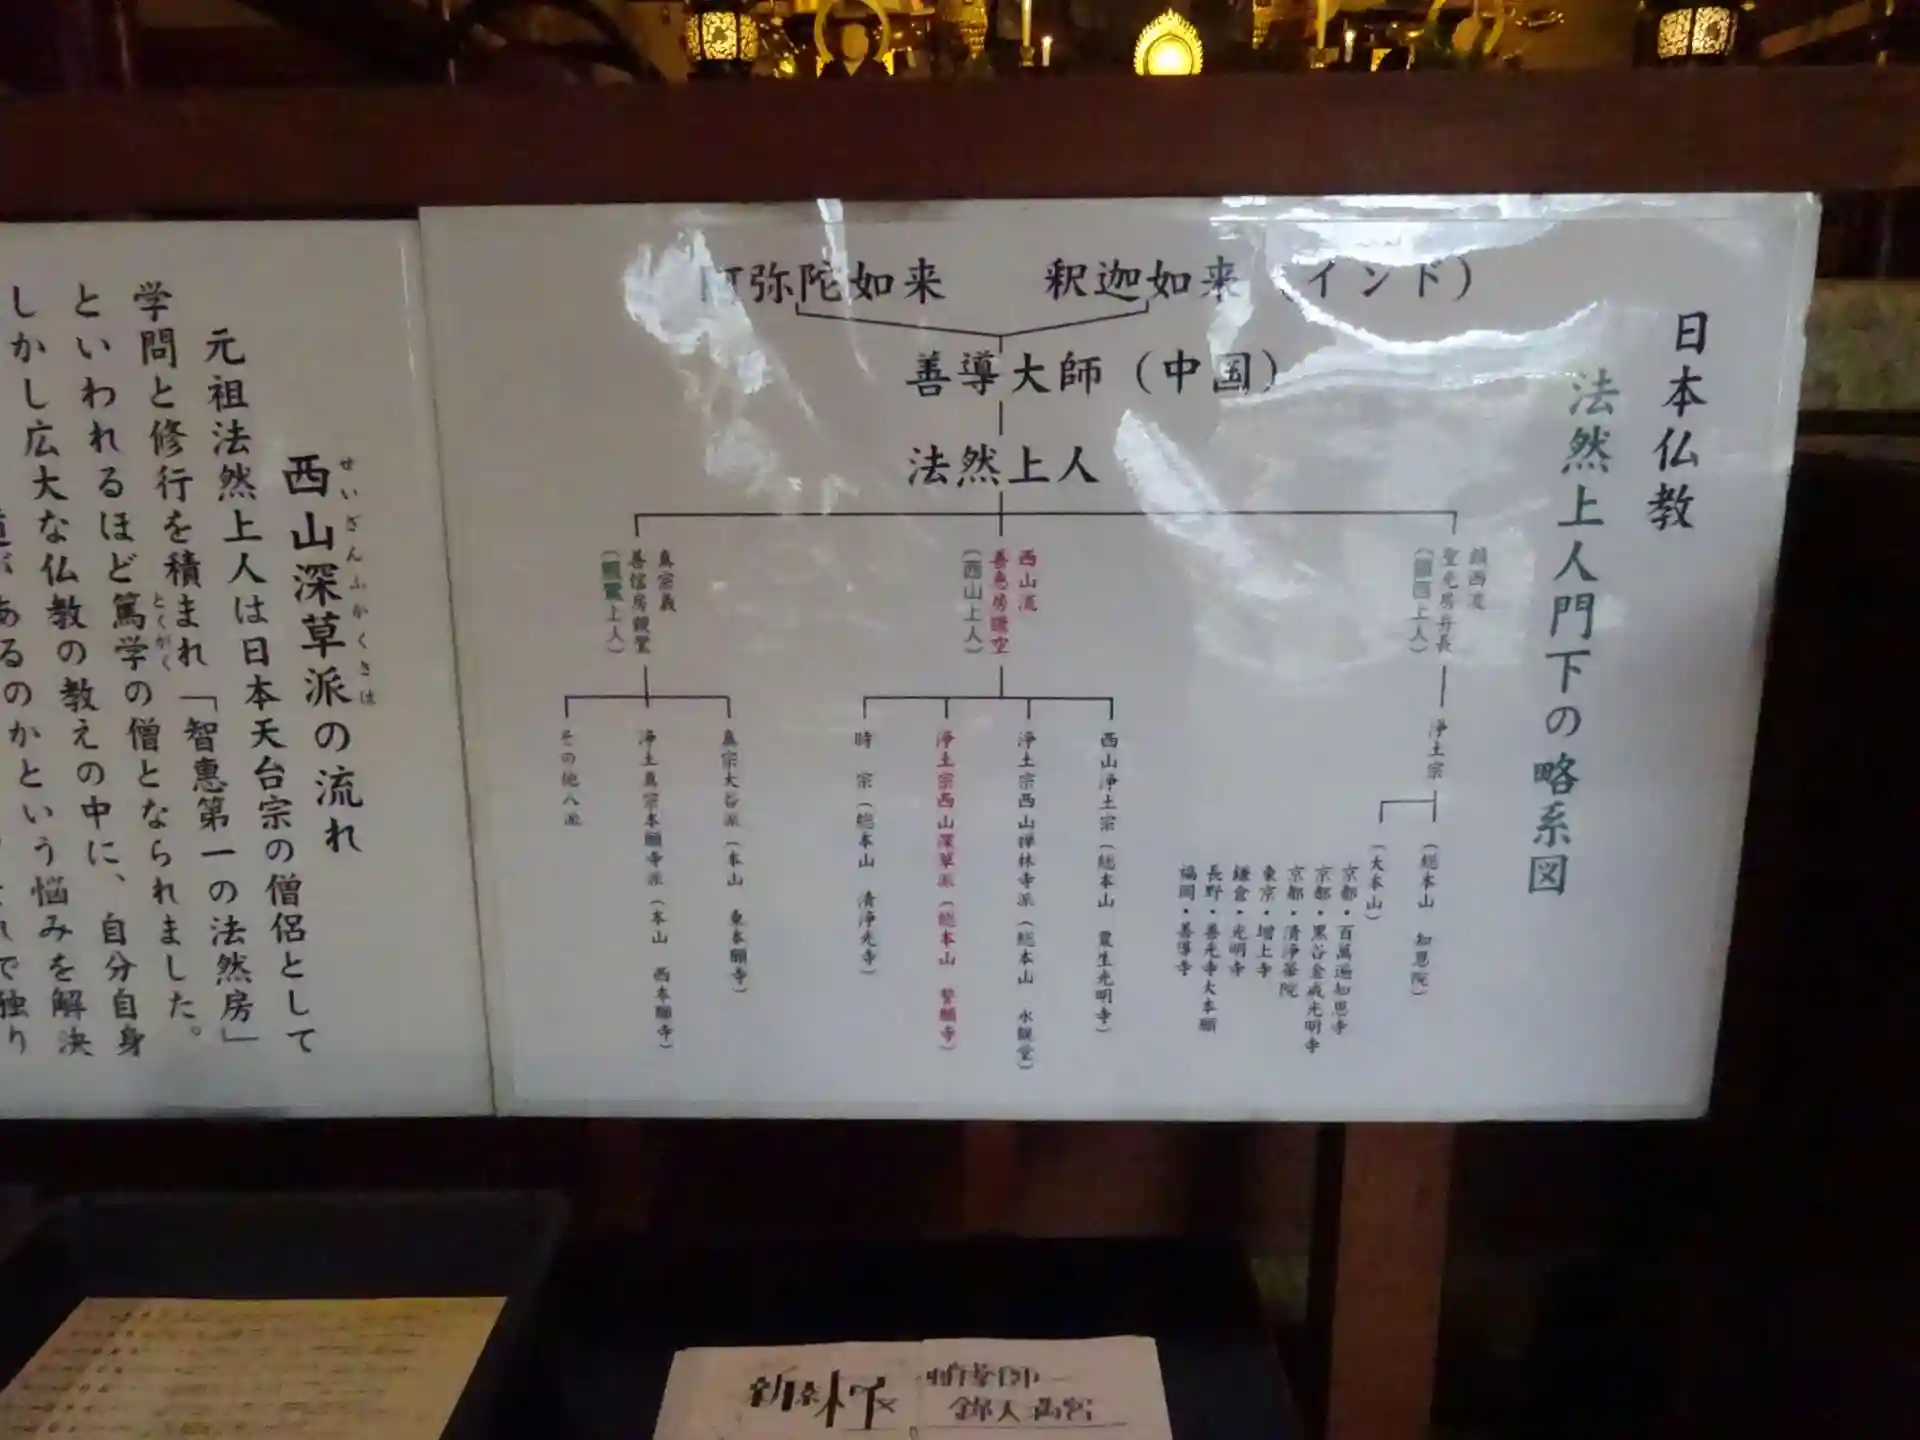 日本仏教
法然上人門下の略系図
阿弥陀如来　釈迦如来（インド）
善導大師（中国）
法然上人
鎮西流
聖光房弁長
（鎮西上人）
浄土宗
（総本山　知恩院）
（大本山）
京都・百萬遍知恩寺
京都・黒谷金戒光明寺
京都・清浄華院
東京・増上寺
鎌倉・光明寺
長野・善光寺大本願
福岡・善導寺
西山流
善恵房證空
（西山上人）
西山浄土宗（総本山　粟生光明寺）
浄土宗西山禅林寺派（総本山　永観堂）
浄土宗西山深草派（総本山　誓願寺）
時　宗（総本山　清浄光寺）
真宗義
善信房親鸞
（親鸞上人）
真宗大谷派（本山　東本願寺）
浄土真宗本願寺派（本山　西本願寺）
その他八派
西山深草派の流れ
せいざんふかくさは
元祖法然上人は日本天台宗の僧侶として
学問と修行を積まれ「智惠第一の法然房」
といわれるほど篤学の僧となられました。
とくがく
しかし広大な仏教の教えの中に、自分自身
あるのかという悩みを解決
で独り